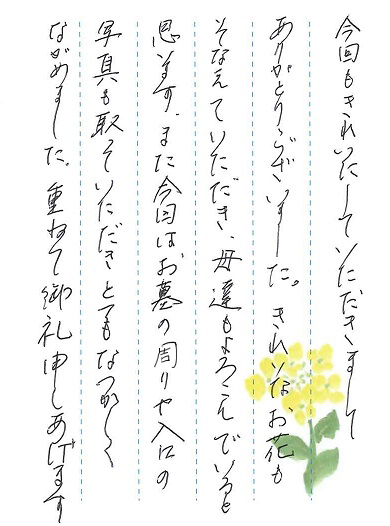 今回もきれいにしていただきまして
ありがとうございました。きれいな、お花も
そなえていただき、母達もよろこんでいると
思います。また今回はお墓の周りや入口の
写真も取っていただきとてもなつかしく
ながめました。重ねて御礼申しあげます